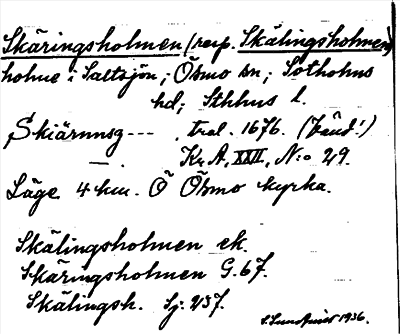 Skäringsholmen (resp. Skälingsholmen)
holme i Saltsjön, Ösmo sn; Sotholms
hd; Sthlms l.
Skiärnnsg--- tral. 1676. (Länd!)
— Kr. A. XXII, N:o 29.
Läge 4 km. Ö Ösmo kyrka.
Skälingsholmen ek.
Skäringsholmen G.67.
Skälingsh. Sj. 237.
1936.